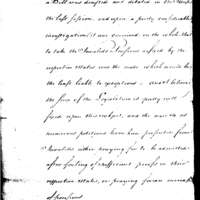 a Bill was drafted and debated in the
the last Session, and upon a pretty considerable
investigation it was conceived on the whole, that
to take the Invalids &c Pensions as fixed by the
respective States was the mode which would be
the least liable to exceptions — and I believe
the sense of the Legislature is pretty well
fixed upon this subject, and the more so as
numerous petitions have been presented from
Invalids either praying for to be admitted
after failing of sufficient proofs in their
respective States, or praying for an increase
of Pensions